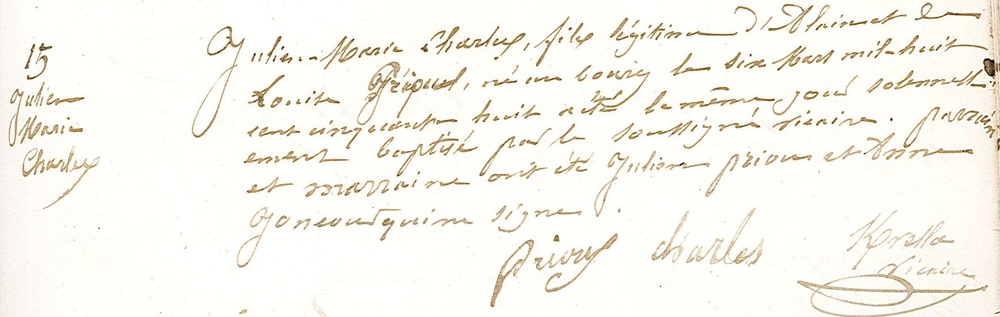 15
Julien
Marie
Charles
Julien-Marie Charles, fils légitime d'Alain et de
Louise, né au bourg le six Mars mil-huit
cent cinquante huit a été le même jour solennell
ement baptisé par le soussigné vicaire. parrain
et marraine ont été Julien prioux et Anne
qui ne signe.
Charles
vicaire